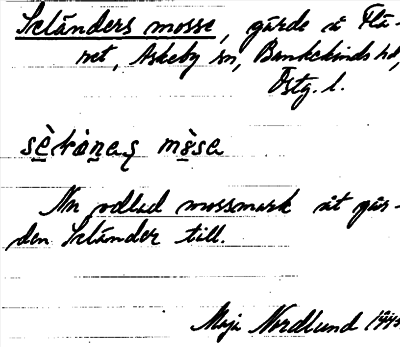 Seländers mosse, gärde å Flä-
net, Askeby sn, Bankekinds hd,
Östg. l.
mòsa
Nu odlad mossmark åt går-
den Seländer till.
Maja Nordlund 1945